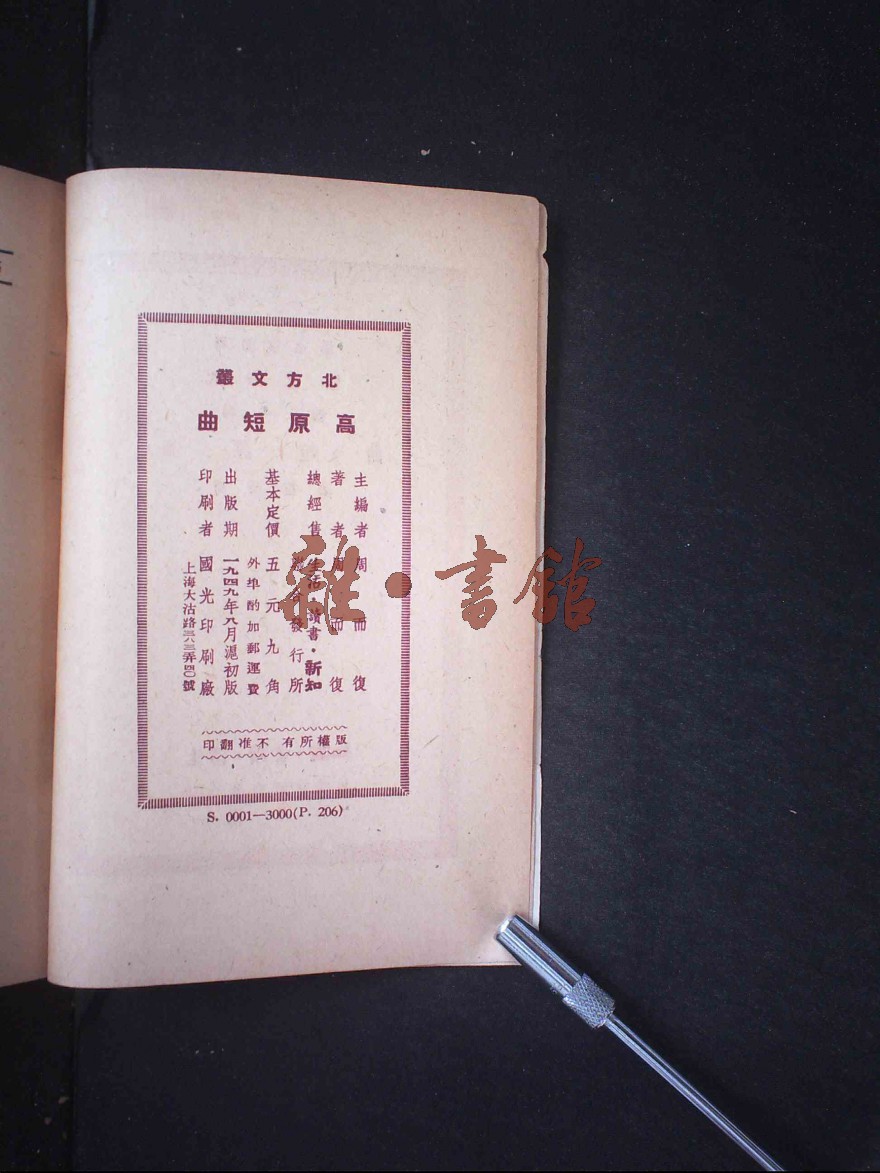 北方文叢
高原短曲
主編者 周而復
著者 周而復
總經售 生活·讀書·新知
聯合發行所
基本定價 五元九角
外埠酌加郵運費
出版期 一九四九年八月滬初版
印刷者 國光印刷廠
上海大沽路三六三弄四〇號
版權所有 不准翻印
S. 0001—3000(P. 206)
雜·書館